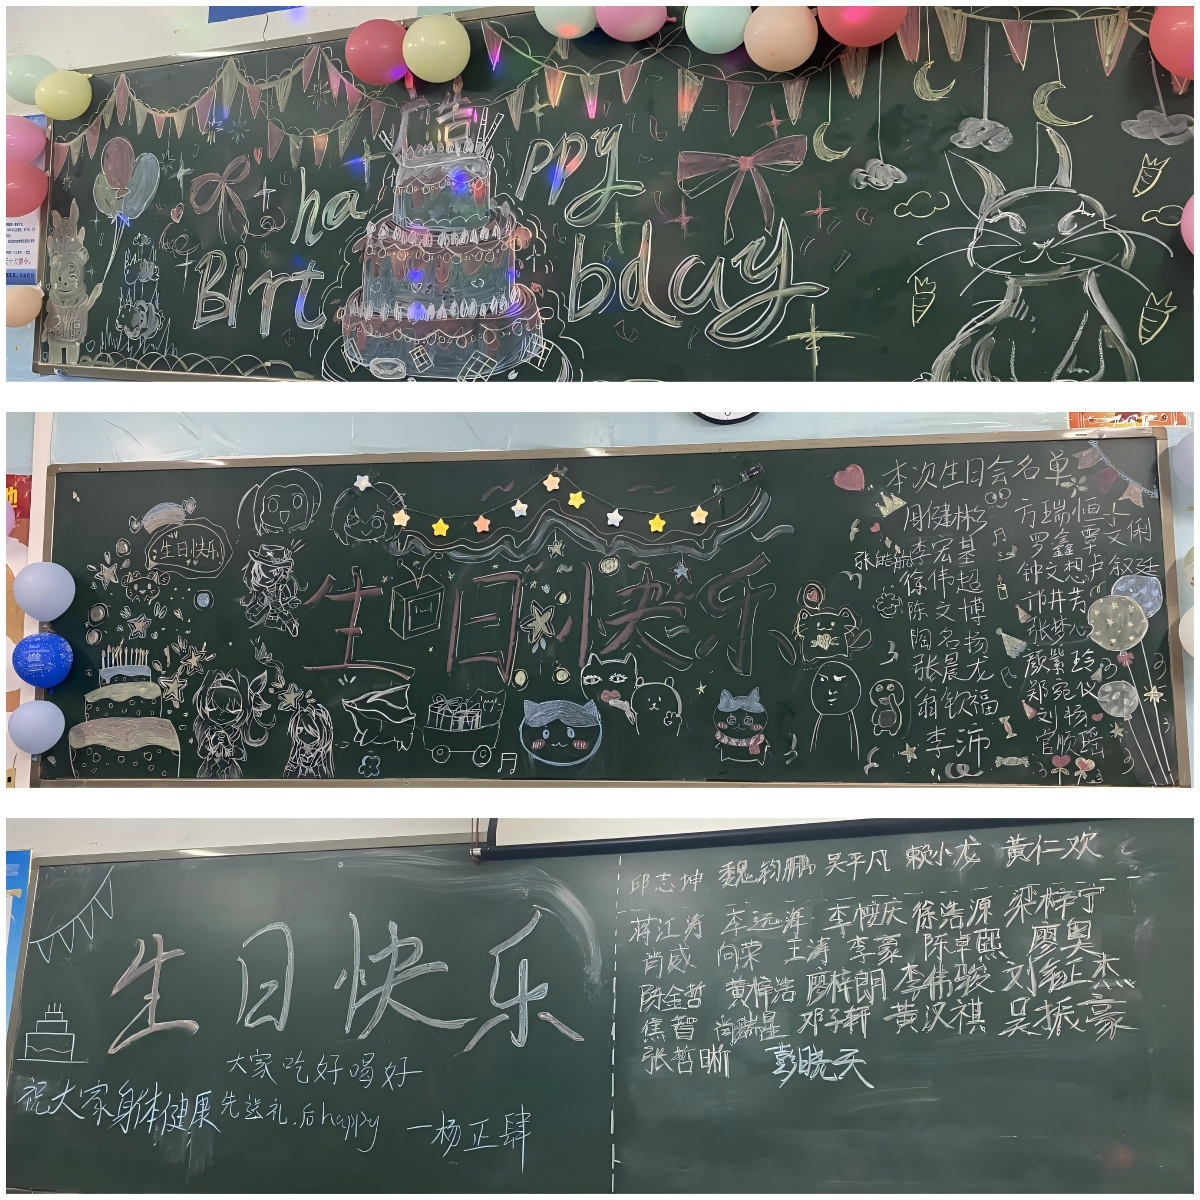 happy
Birthday
生日快乐
生日快乐
本次生日会名单
周健彬
李宏基
张皓航
徐伟超
陈文博
陶名扬
张晨龙
翁钦福
李沛
方瑞恒
罗鑫
钟文想
祁井芳
张梦心
颜紫玲
郑宛仪
刘杨
官顺瑶
生日快乐
大家吃好喝好
祝大家身体健康
先送礼.后happy
一杨正肆
邱志坤 魏钧鹏 吴平凡 赖小龙 黄仁欢
蒋江涛 李远海 李恺庆 徐浩源 梁梓宁
肖威 向荣 王涛 李豪 陈卓熙 廖奥
陈金哲 黄梓浩 廖梓朗 李伟骏 刘钲杰
焦智 尚瑞星 邓子轩 黄汉祺 吴振豪
张哲昕 彭晓天